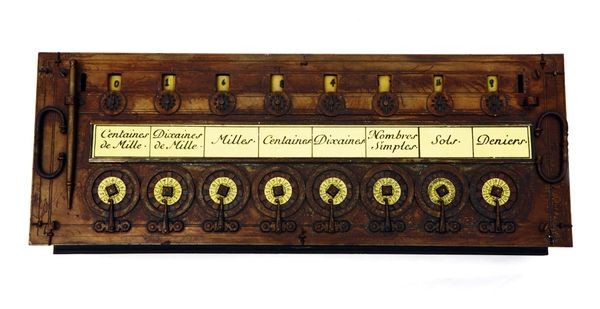 Centaines de Mille.
Dixaines de Mille.
Milles.
Centaines
Dixaines
Nombres Simples.
Sols.
Deniers